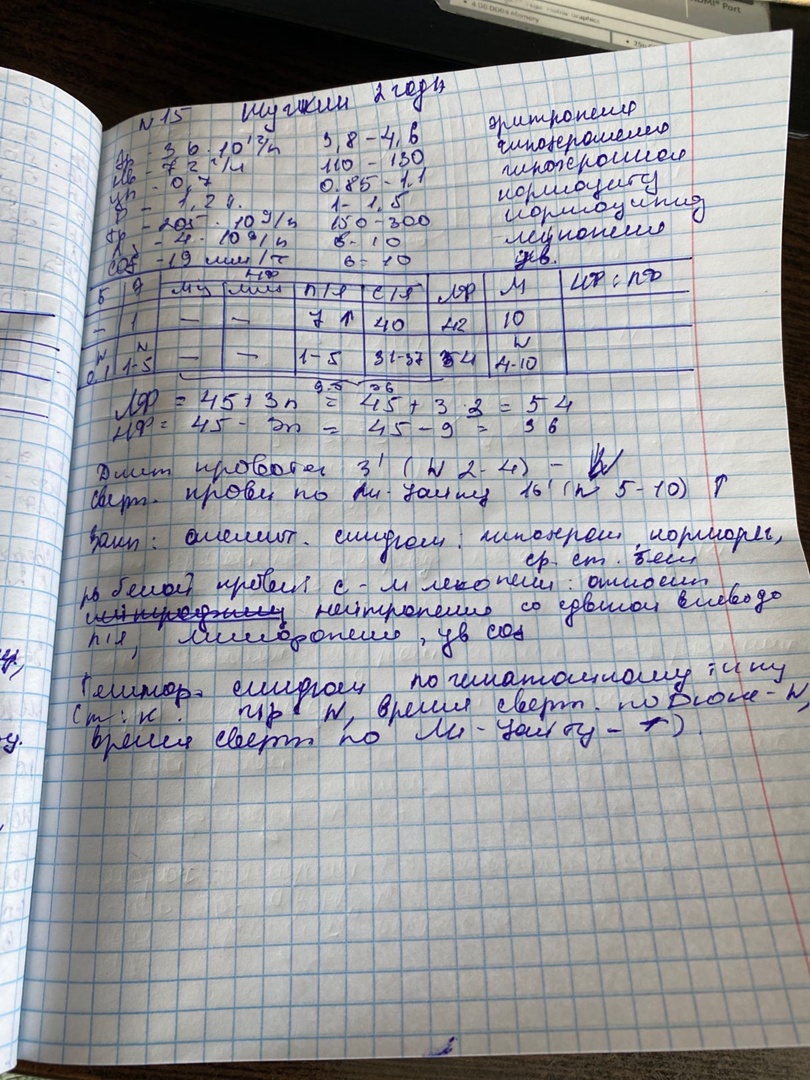 4 GB DDR4 Memory
HDMI® Port
N 15 2 года
Эр - 3,6 · 10¹²/л 3,8 - 4,6 эритропения
Нв - 72 г/л 110 - 130 гипохромемия
цп - 0,7 0.85 - 1.1 гипохромная
1,2%. 1 - 1,5 нормоциту
Тр - 205 · 10⁹/л 150-300 нормоцитоз
4 · 10⁹/л 6 - 10 лейкопения
СОЭ - 19 мм/ч 6 - 10 ув.
НФ
Б Э Мц Ммц П/Я С/Я ЛФ М НФ : ЛФ
— 1 — — 7 ↑ 40 42 10
N N N
0,1 1-5 — — 1-5 31-37 54 4-10
36
ЛФ = 45 + 3n = 45 + 3·3 = 54
НФ = 45 - 3n = 45 - 9 = 36
Длит кровотеч 3' (N 2-4) - N
сверт. крови по Ли-Уайту 16' (N 5-10) ↑
Закл: анемич. синдром: гипохром, норморег,
ср. ст. тяж
белой крови с-м лекопении: относит
нейтропения со сдвигом влево до
п/я, лимфопения, ув СОЭ
Геммор. синдром по гематомному типу
N, время сверт. по Дюке - N,
время сверт по Ли-Уайту - ↑)